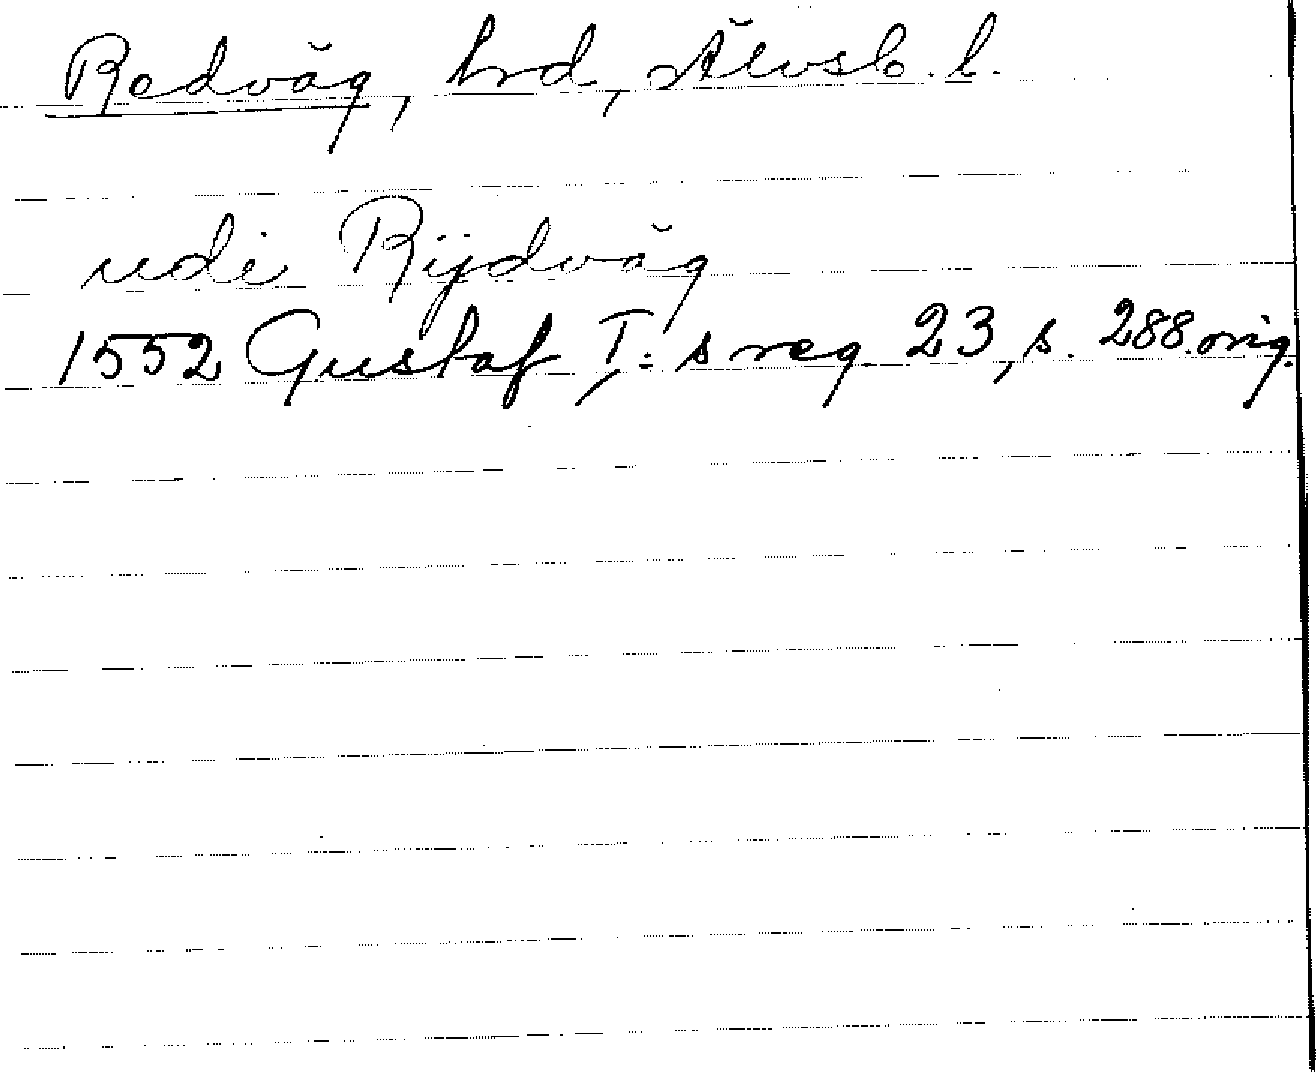 Redväg, hrd, Älvsb. l.
udi Rijdvåg
1552 Gustaf I:s reg. 23, s. 288. orig.